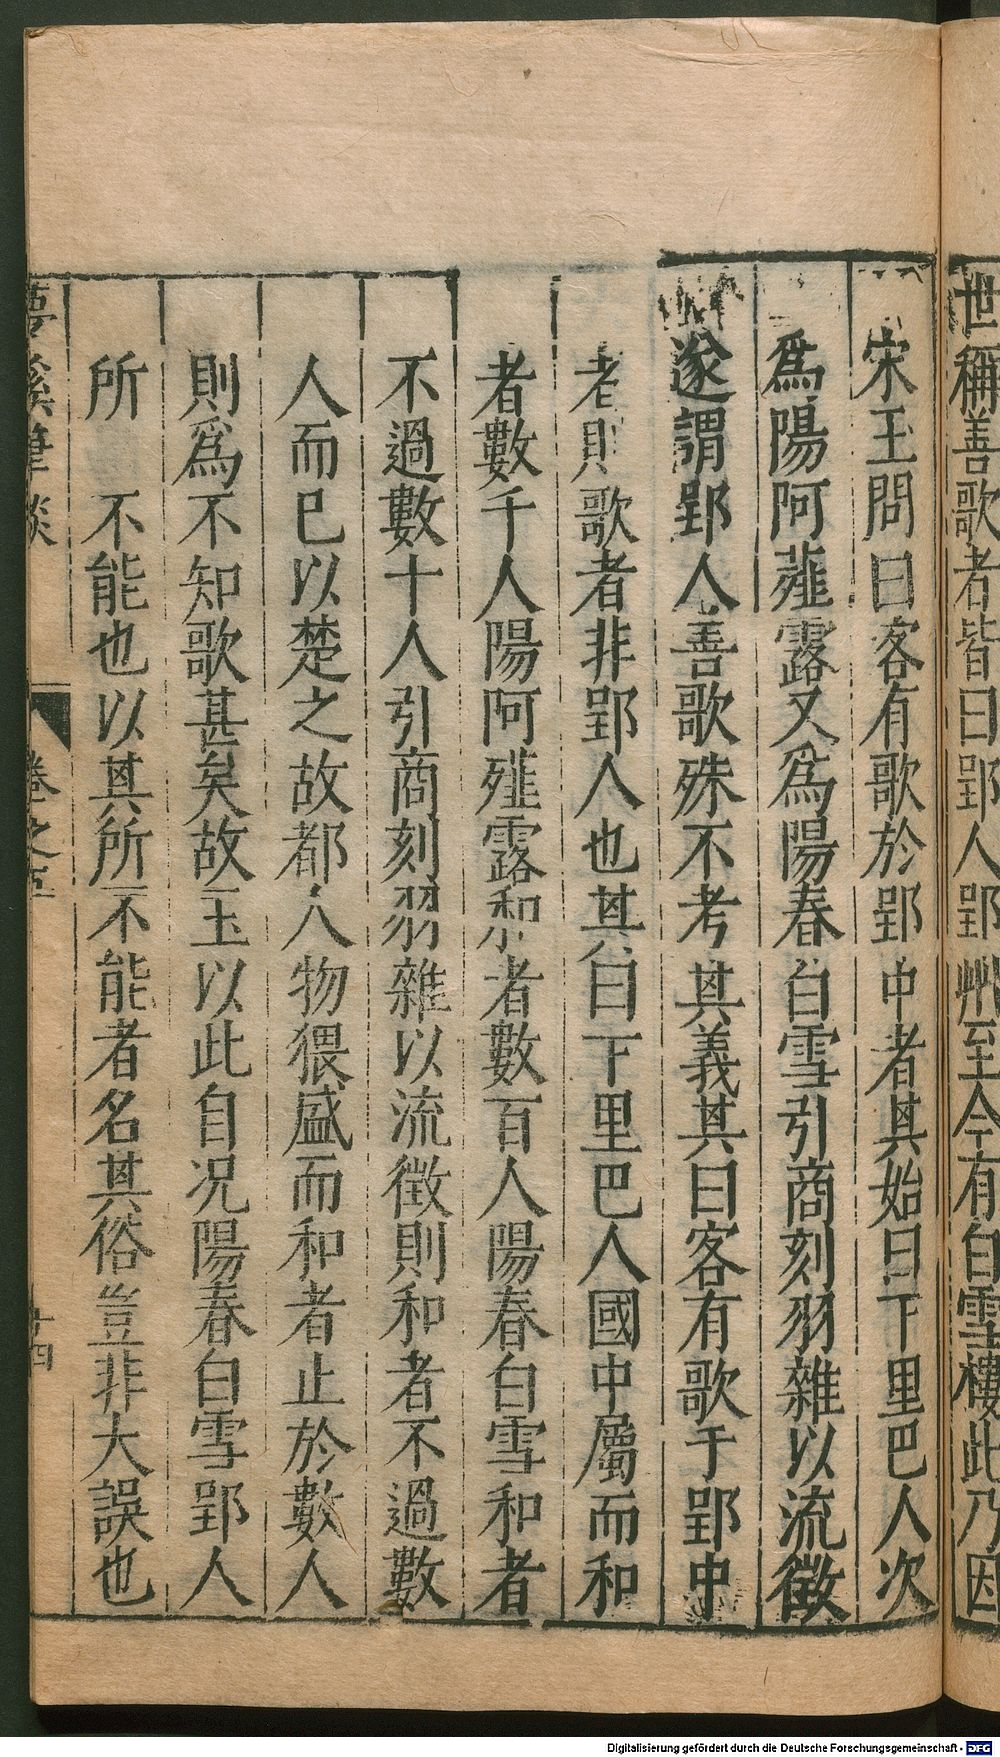 世稱善歌者皆曰郢人郢州至今有白雪樓此乃因
宋玉問曰客有歌於郢中者其始曰下里巴人次
爲陽阿薤露又爲陽春白雪引商刻羽雜以流徵
遂謂郢人善歌殊不考其義其曰客有歌于郢中
者則歌者非郢人也其曰下里巴人國中屬而和
者數千人陽阿薤露和者數百人陽春白雪和者
不過數十人引商刻羽雜以流徵則和者不過數
人而已以楚之故都人物猥盛而和者止於數人
則爲不知歌甚矣故玉以此自况陽春白雪郢人
所 不能也以其所不能者名其俗豈非大誤也
夢溪筆談 卷之五 十四
Digitalisierung gefördert durch die Deutsche Forschungsgemeinschaft - DFG